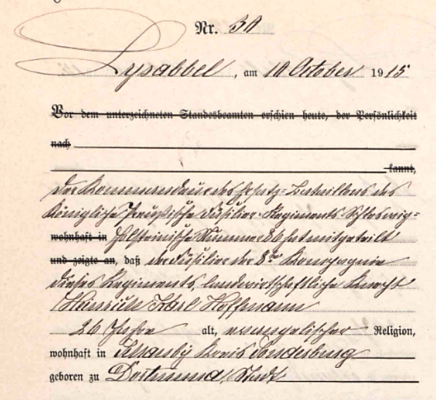 Nr. 50
Lysabbel, am 10 October 1915
Vor dem unterzeichneten Standesbeamten erschien heute, der Persönlichkeit
nach
kannt,
Der Kommandeur des Ersatz-Bataillons des
Königliche Preußische Füsilier-Regiments Schleswig-
wohnhaft in Holsteinische Nummer 86 hat mitgeteilt
und zeigte an, daß der Füsilier der 8ten Kompagnie
dieses Regiments, landwirtschaftliche Knecht
Heinrich Karl Hoffmann
26 Jahre alt, evangelischer Religion,
wohnhaft in Kreis Sonderburg
geboren zu Dortmund, Stadt